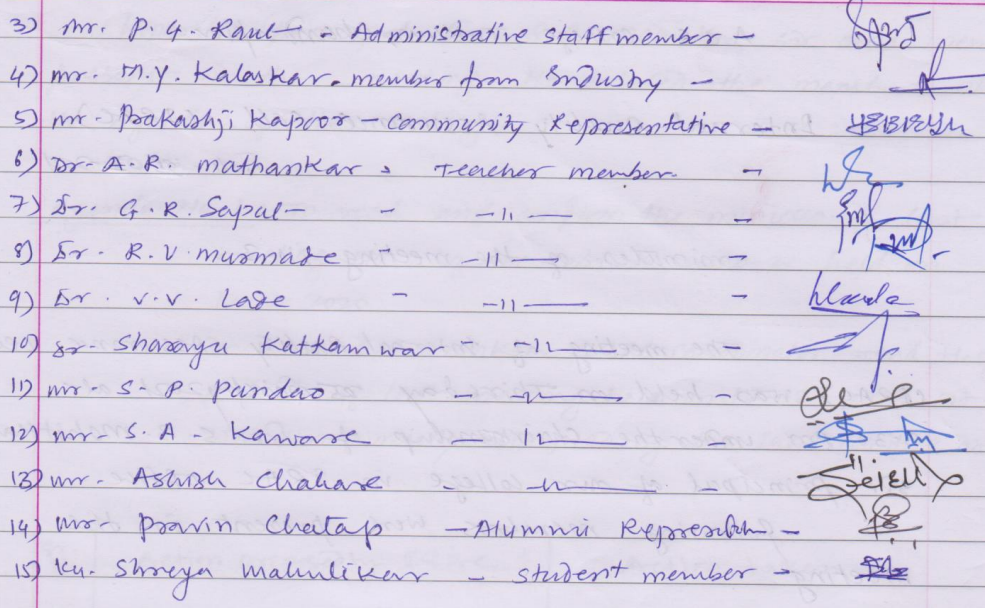 3) Mr. P. G. Raut - Administrative staff member -
4) Mr. M.Y. Kalaskar. member from Industry -
5) Mr. Prakashji Kapoor - Community Representative -
6) Dr. A. R. Mathankar, Teacher member -
7) Dr. G. R. Sapal - - -11- -
8) Dr. R. V. - -11- -
9) Dr. V. V. Lade - -11- -
10) Dr. Sharayu Katkamwar - -11-
11) Mr. S. P. Pandao - -11- -
12) Mr. S. A - Kaware - 11 -
13) Mr. Ashish Chahare - -11- -
14) Mr. Pravin Chatap - Alumnii -
15) Ku. Shreya Mahulikar - student member -